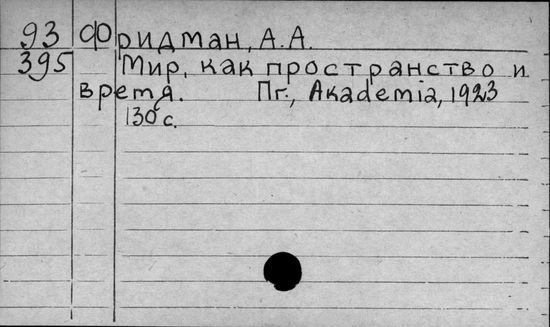 93 Фридман, А.А.
395 Мир, как пространство и
время. Пг., Akademia, 1923
130 с.